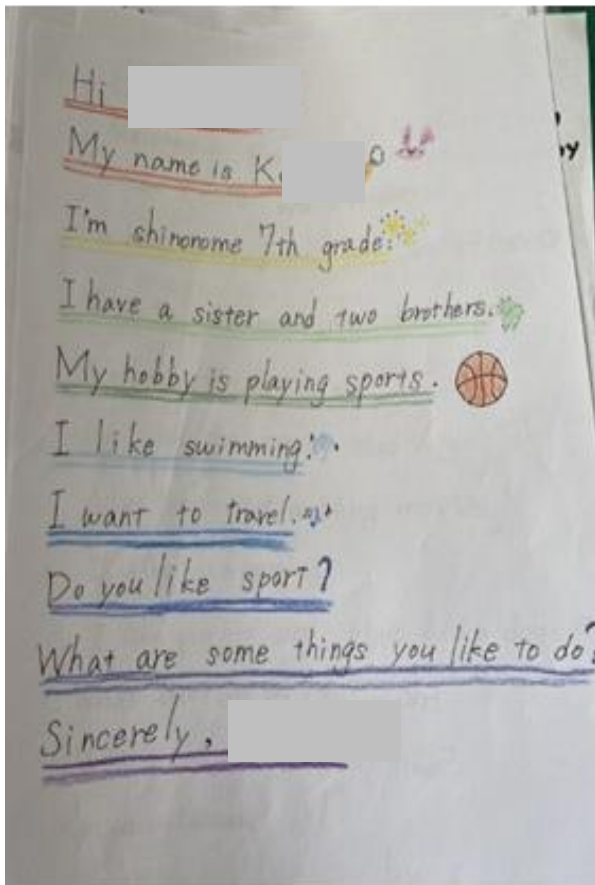 Hi
My name is K
I'm shinonome 7th grade.
I have a sister and two brothers.
My hobby is playing sports.
I like swimming.
I want to travel.
Do you like sport?
What are some things you like to do?
Sincerely,